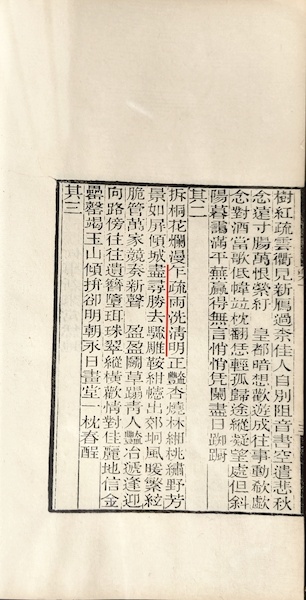 樹紅疏雲衢見新鴈過柰佳人自別阻音書空遣悲秋
念遠寸腸萬恨縈紆　皇都暗想歡遊成往事動欷歔
念對酒當歌低幃並枕翻恁輕孤歸途縱凝望處但斜
陽暮靄滿平蕪贏得無言悄悄凭闌盡日踟躕
其二
拆桐花爛漫乍疏雨洗清明正艷杏燒林緗桃繡野芳
景如屏傾城盡尋勝去驟雕鞍紺幰出郊坰風暖繁絃
脆管萬家競奏新聲　盈盈鬬草蹋青人艷冶遞逢迎
向路傍往往遺簪墮珥珠翠縱橫歡情對佳麗地信金
罍罄竭玉山傾拚卻明朝永日畫堂一枕春酲
其三